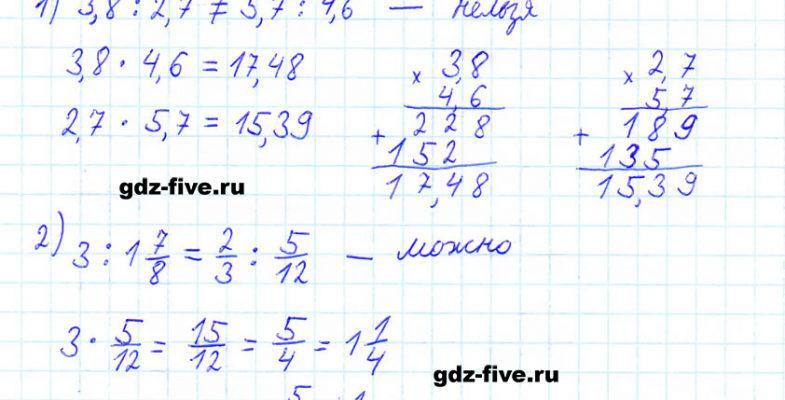 1) 3,8 : 2,7 ≠ 5,7 : 4,6 — нельзя
3,8 · 4,6 = 17,48
2,7 · 5,7 = 15,39
× 3,8
4,6
+ 228
152
17,48
× 2,7
5,7
+ 189
135
15,39
gdz-five.ru
2) 3 : 1 7/8 = 2/3 : 5/12 — можно
3 · 5/12 = 15/12 = 5/4 = 1 1/4
gdz-five.ru